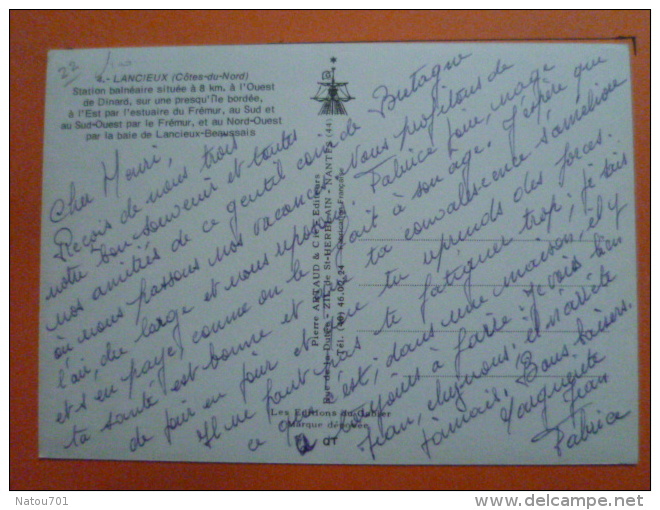 22
2.- LANCIEUX (Côtes-du-Nord)
Station balnéaire située à 8 km. à l'Ouest
de Dinard, sur une presqu'île bordée,
à l'Est par l'estuaire du Frémur, au Sud et
au Sud-Ouest par le Frémur, et au Nord-Ouest
par la baie de Lancieux-Beaussais
Cher Henri,
Reçois de nous trois
notre bon souvenir et toutes
nos amitiés de ce gentil coin de Bretagne
où nous passons nos vacances. Nous profitons de
l'air du large et nous reposons. Fabrice joue, nage
et s'en paye, comme on le fait à son âge. J'espère que
ta santé est bonne et que ta convalescence s'améliore
de jour en jour et que tu reprends des forces.
Il ne faut pas te fatiguer trop; je sais
ce que c'est, dans une maison, il y
a toujours à faire. Je vois bien
Jean, chez nous, il n'arrête
jamais. Bons baisers.
Marguerite
Jean
Fabrice
Pierre ARTAUD & Cie Editeurs
Rue de la - Z.I. de St-HERBLAIN - NANTES (44)
Tél. (40) 46.07.24 Fabrication Française
Les Editions du Gabier
Marque déposée
Natou701
www.delcampe.net